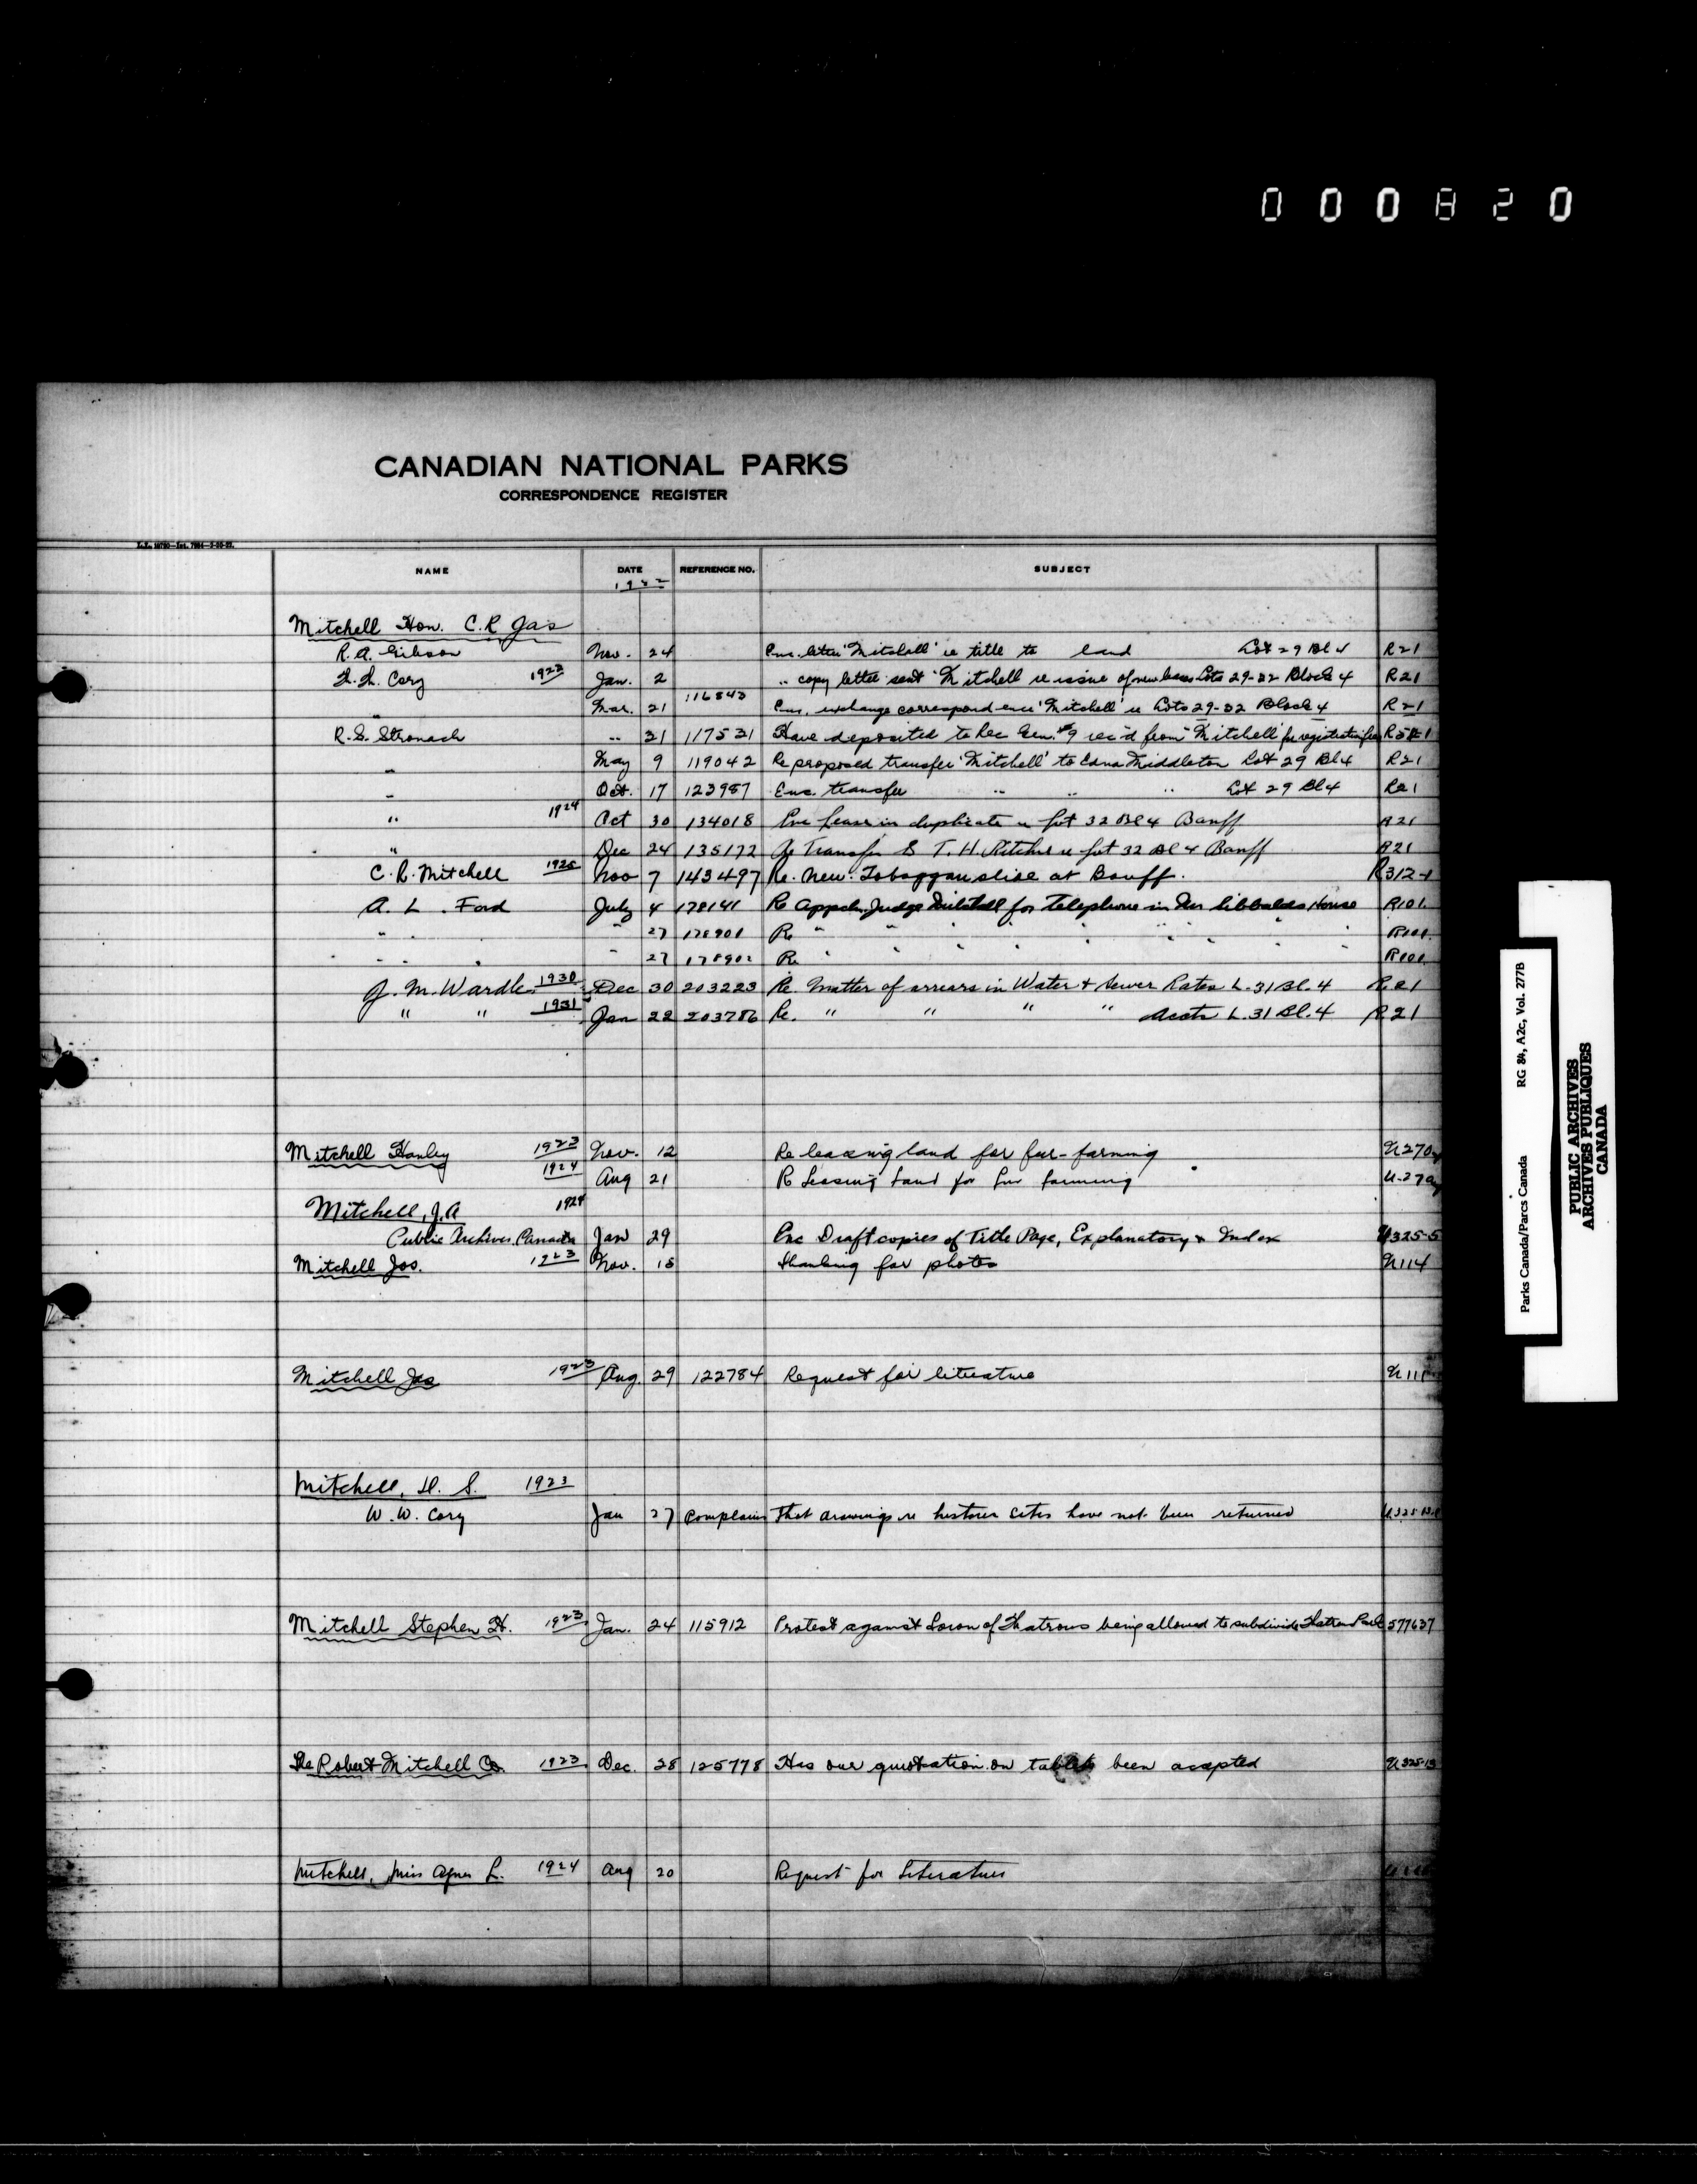 000820
CANADIAN NATIONAL PARKS
CORRESPONDENCE REGISTER
NAME DATE REFERENCE NO. SUBJECT
1922
Mitchell Hon. C.R Jas
R.A. Gibson Nov. 24 Enc. letter 'Mitchell' re title to land Lot 29 Bl 4 R21
Cory 1923 Jan. 2 " copy letter sent 'Mitchell re issue of new leases Lots 29-32 Block 4 R21
" Mar. 21 116843 Enc. exchange correspondence 'Mitchell' re Lots 29-32 Block 4 R21
R.S. Stronach " 21 117531 Have deposited to Rec Gen. $9 rec'd from 'Mitchell' for registration fees
" May 9 119042 Re proposed transfer 'Mitchell' to Edna Middleton Lot 29 Bl 4 R21
" Oct. 17 123987 Enc. transfer " " " Lot 29 Bl 4 R21
" 1924 Oct 30 134018 Enc Lease in duplicate re Lot 32 Bl 4 Banff R21
" Dec 24 135172 Re Transfer to T. H. re Lot 32 Bl 4 Banff R21
C. R. Mitchell 1925 Nov 7 143497 Re. New Toboggan slide at Banff. R312-1
A. L. Ford July 4 178141 Re Appcln. Judge Mitchell for telephone in House R101
" " " 27 178901 Re " " " " " " R101
" " " 27 178902 Re " " " " " " R101
J. M. Wardle 1930 Dec 30 203223 Re. Matter of arrears in Water & Sewer Rates L. 31 Bl. 4 R21
" " 1931 Jan 22 203786 Re. " " " " Accts L. 31 Bl. 4 R21
Mitchell Hanley 1923 Nov. 12 Re leasing land for fur-farming
1924 Aug 21 Re Leasing Land for fur farming
Mitchell, J.A 1924
Public Archives, Canada Jan 29 Enc Draft copies of Title Page, Explanatory & Index U325-5
Mitchell Jos. 1923 Nov. 15 Thanking for photos U114
Mitchell Jas 1923 Aug. 29 122784 Request for literature
Mitchell, H. S. 1923
W. W. Cory Jan 27 Complains that drawings re historic sites have not been returned
Mitchell Stephen H. 1923 Jan. 24 115912 Protest against being allowed to subdivide 577637
The Robert Mitchell Co. 1923 Dec. 28 125778 Has our quotation on tablets been accepted U325-13
Mitchell, Miss Agnes L. 1924 Aug 20 Request for Literature
Parks Canada/Parcs Canada RG 84, A2c, Vol. 277B
PUBLIC ARCHIVES
ARCHIVES PUBLIQUES
CANADA